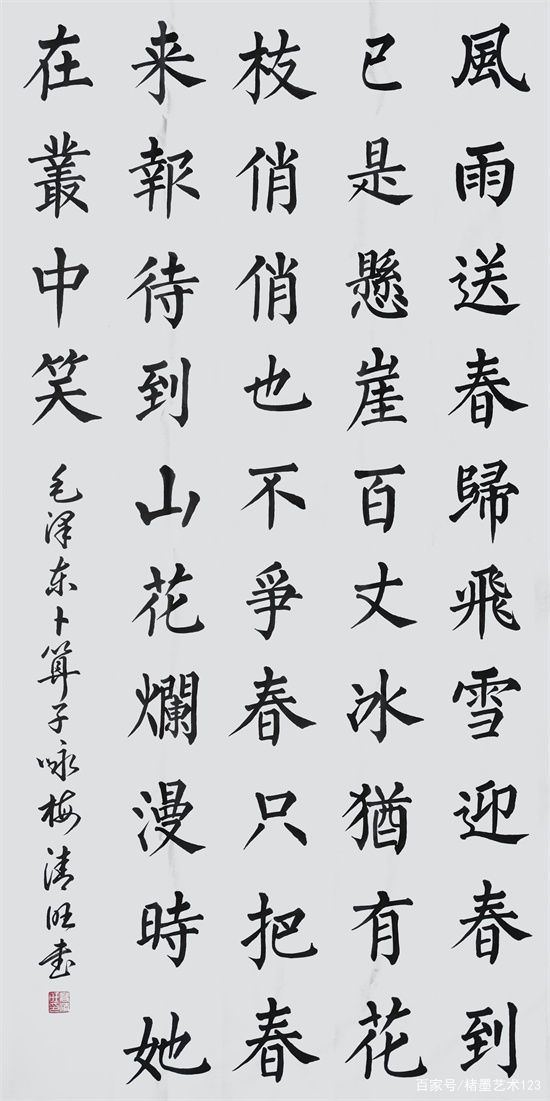 風雨送春歸飛雪迎春到
已是懸崖百丈冰猶有花
枝俏俏也不爭春只把春
来報待到山花爛漫時她
在叢中笑
毛泽东卜算子咏梅清旺书
百家号/楮墨艺术123